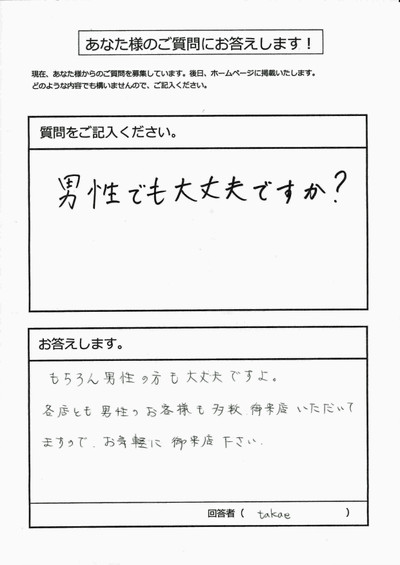 あなた様のご質問にお答えします！
現在、あなた様からのご質問を募集しています。後日、ホームページに掲載いたします。
どのような内容でも構いませんので、ご記入ください。
質問をご記入ください。
男性でも大丈夫ですか？
お答えします。
もちろん男性の方も大丈夫ですよ。
各店とも男性のお客様も多数御来店いただいて
ますので、お気軽に御来店下さい。
回答者（ takae ）